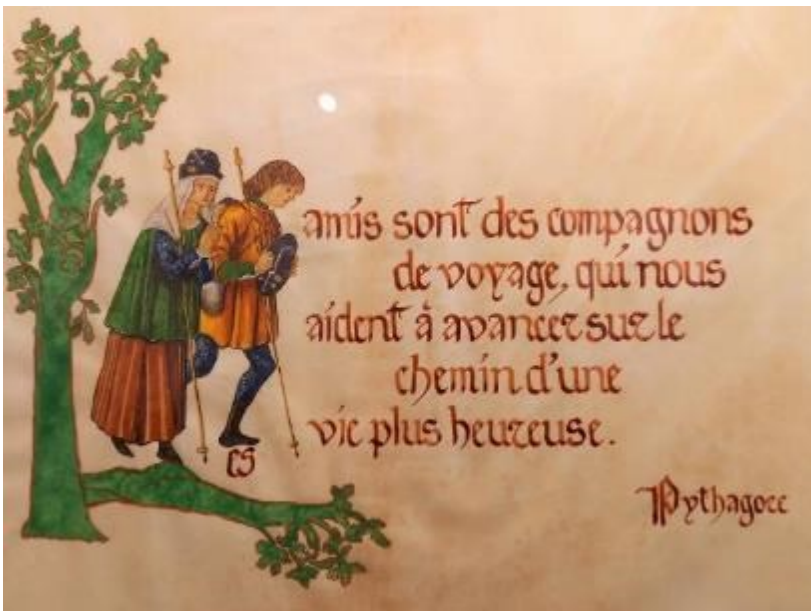 Les amis sont des compagnons
de voyage, qui nous
aident à avancer sur le
chemin d'une
vie plus heureuse.
Pythagore